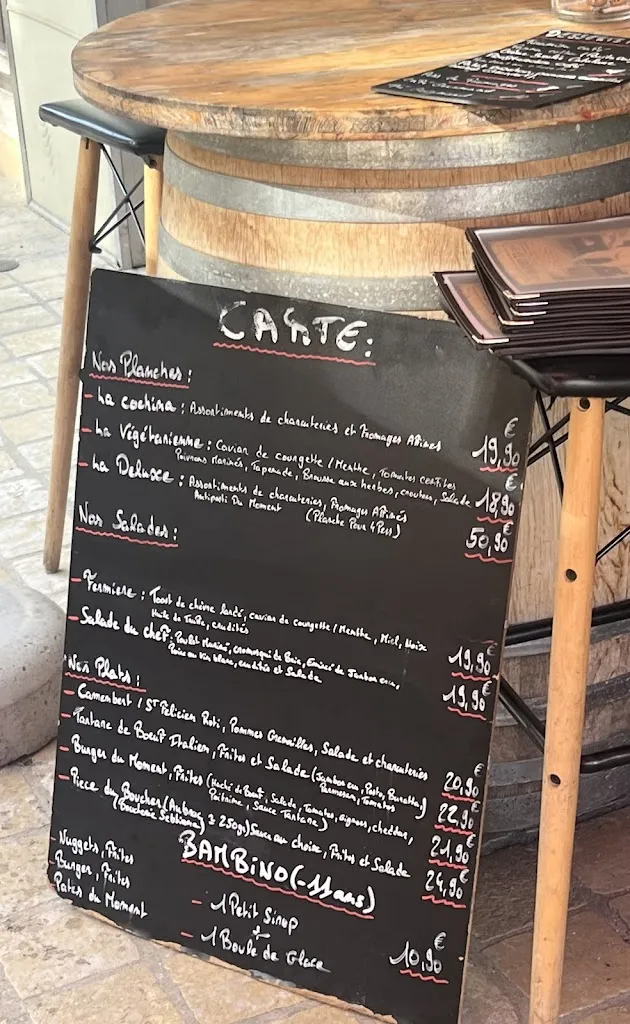 CARTE:
Nos Planches :
- La cochina : Assortiments de charcuteries et Fromages Affinés 19,90€
- La Végétarienne : Caviar de courgette / Menthe, Tomates confites
Poivrons Marinés, Tapenade, Brousse aux herbes, croutons, Salade 18,90€
- La Deluxe : Assortiments de charcuteries, Fromages Affinés
Antipasti Du Moment (Planche Pour 4 Pers) 50,90€
Nos Salades :
- Fermière : Toast de chèvre lardé, caviar de courgette / Menthe, Miel, Noix
Huile de Truffe, crudités 19,90€
- Salade du chef : Poulet Mariné, cromesqui de Brie, Émincé de Jambon cru,
Poire au vin blanc, crudités et Salade 19,90€
Nos Plats :
- Camembert / St Félicien Roti, Pommes Grenailles, Salade et charcuteries 20,90€
- Tartare de Boeuf Italien, Frites et Salade (Jambon cru, Pesto, Burratta,
Parmesan, Tomates) 22,90€
- Burger du Moment, Frites (Haché de Boeuf, Salade, Tomates, oignons, cheddar,
Poitrine, Sauce Tartare) 21,90€
- Pièce du Boucher (Aubrac, ± 250gr) Sauce au choix, Frites et Salade
(Boucherie) 24,90€
BAMBINO (-11ans)
- Nuggets, Frites
- Burger, Frites
- Pates du Moment
- 1 Petit Sirop
+
- 1 Boule de Glace
10,90€